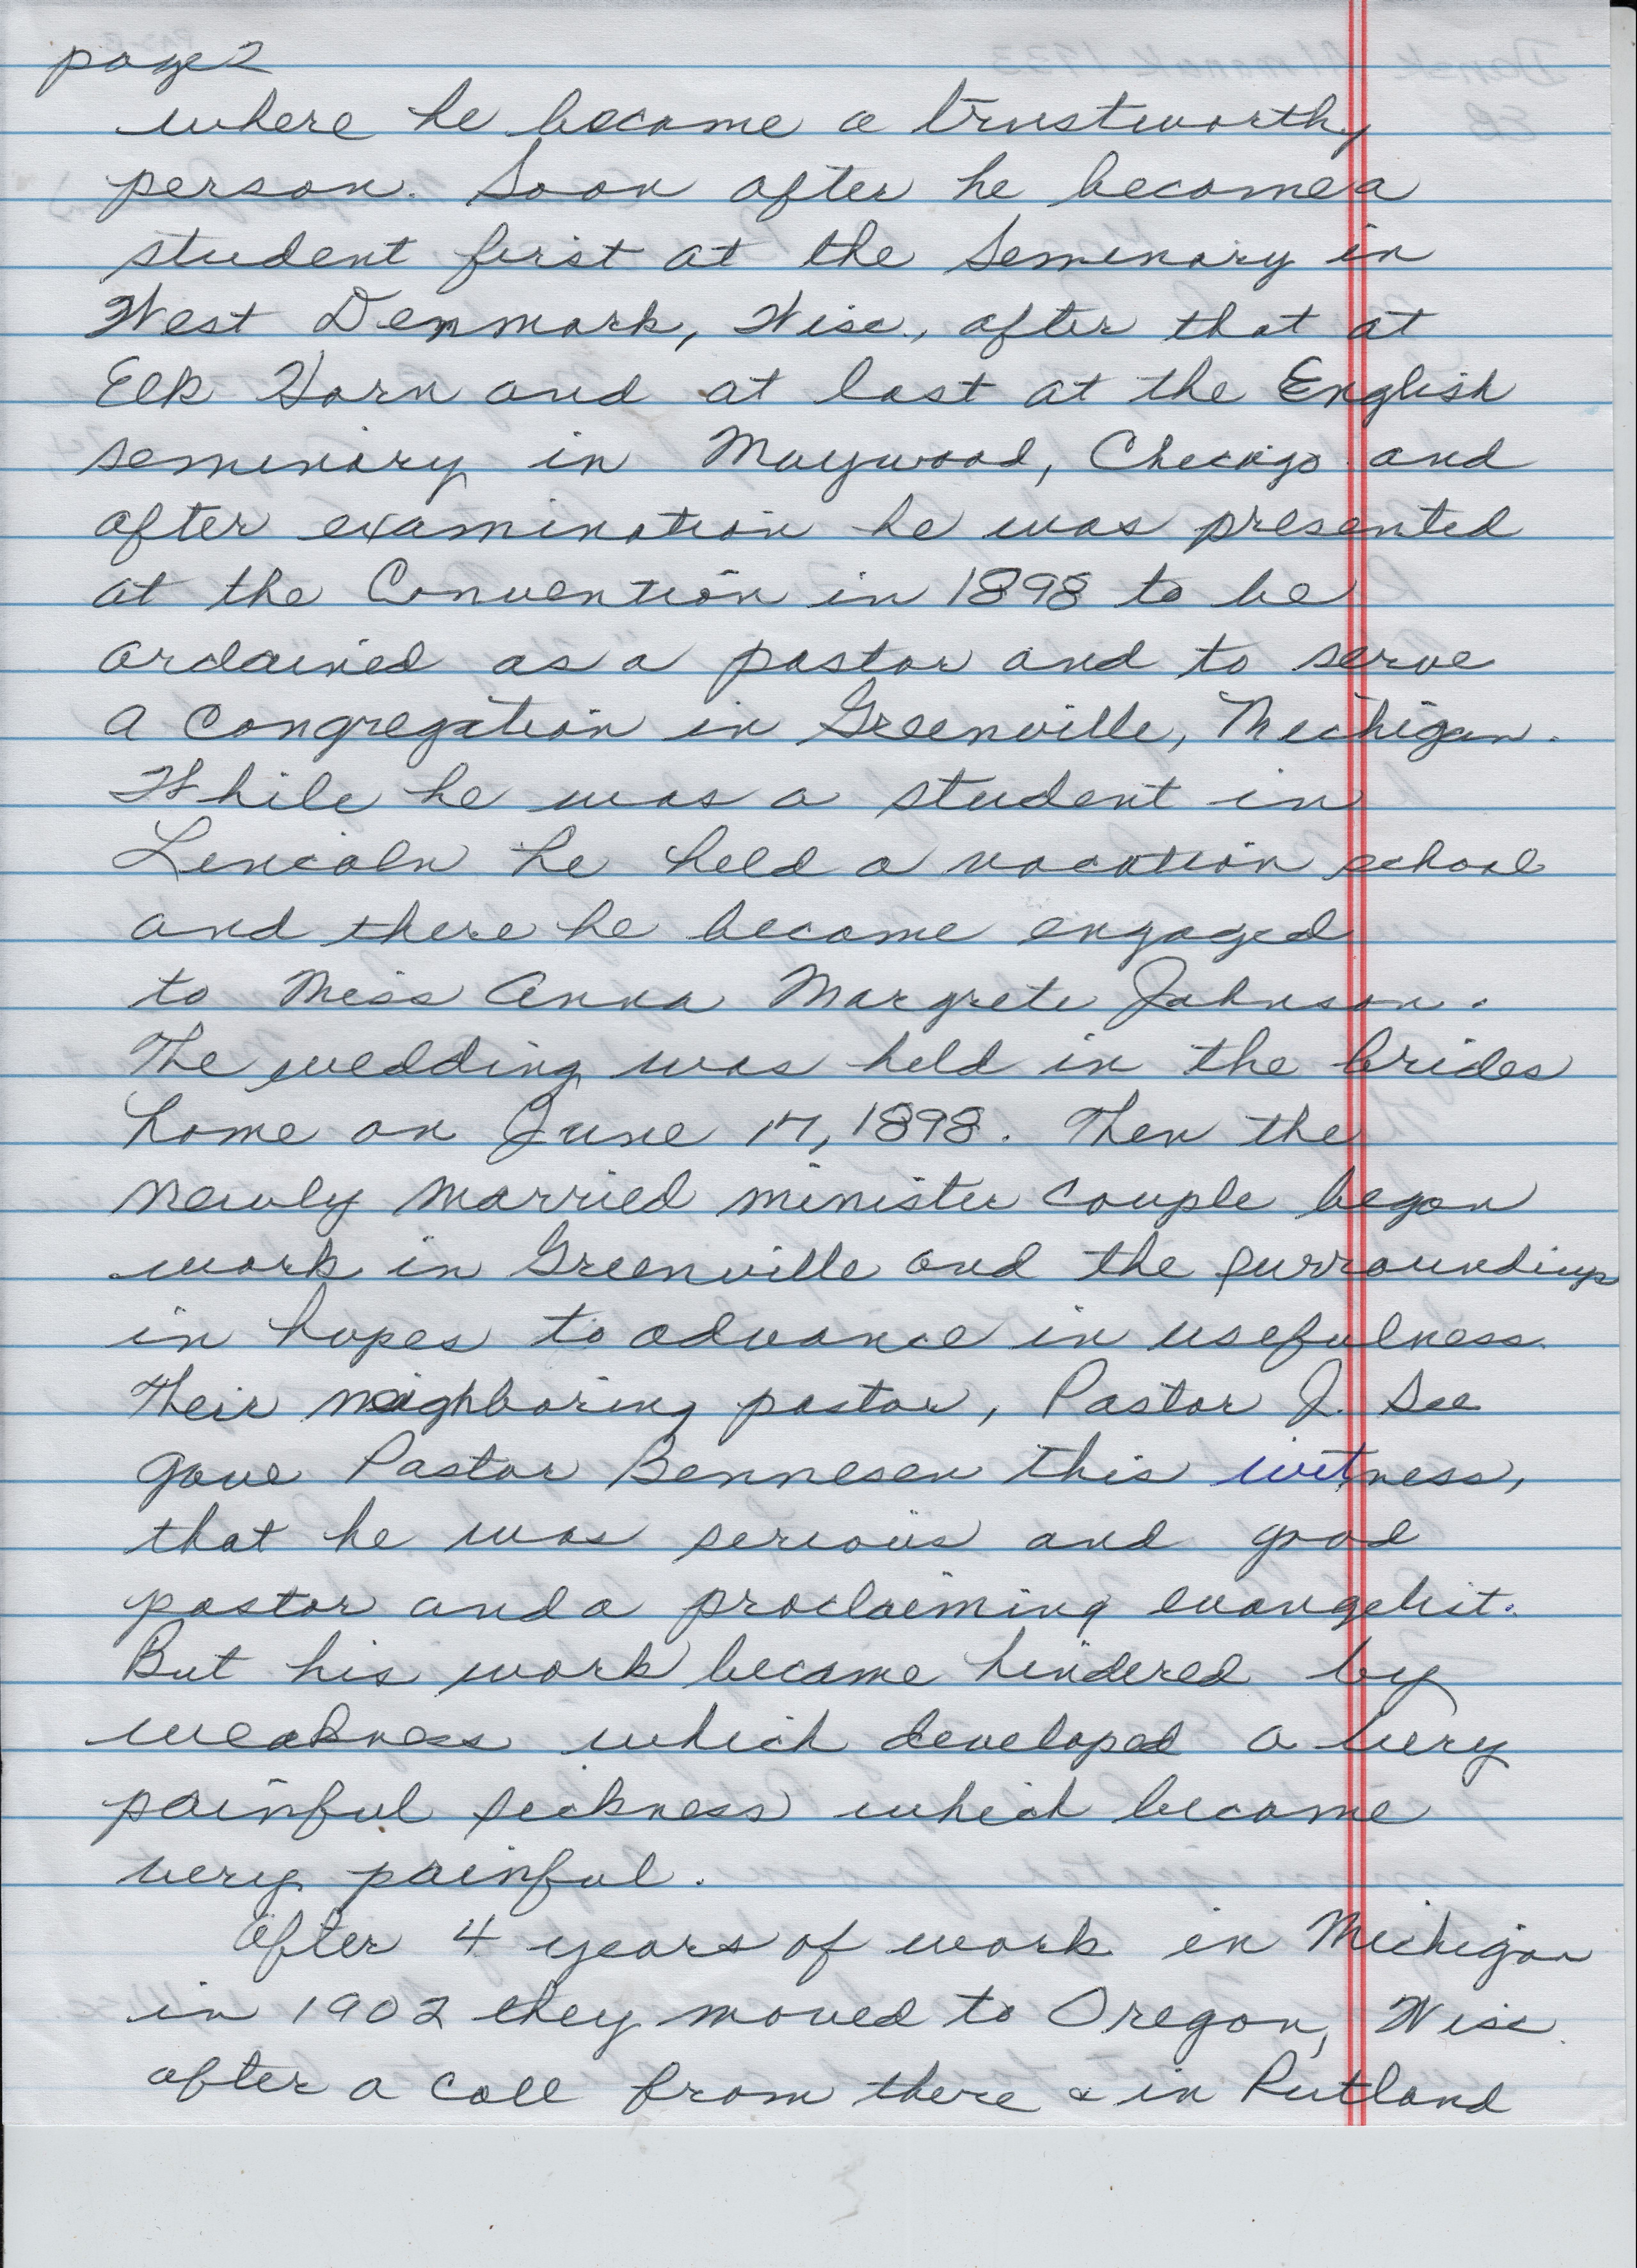 page 2
where he became a trustworthy
person. Soon after he became a
student first at the Seminary in
West Denmark, Wisc., after that at
Elk Horn and at last at the English
seminary in Maywood, Chicago and
after examination he was presented
at the Convention in 1898 to be
ordained as a pastor and to serve
a congregation in Greenville, Michigan.
While he was a student in
Lincoln he held a vacation school
and there he became engaged
to Miss Anna Margrete Johnson.
The wedding was held in the brides
home on June 17, 1898. Then the
newly married minister couple began
work in Greenville and the surroundings
in hopes to advance in usefulness.
Their neighboring pastor, Pastor J. See
gave Pastor Bennesen this witness,
that he was serious and good
pastor and a proclaiming evangelist.
But his work became hindered by
weakness which developed a very
painful sickness which became
very painful.
After 4 years of work in Michigan
in 1902 they moved to Oregon, Wisc.
after a call from there & in Rutland